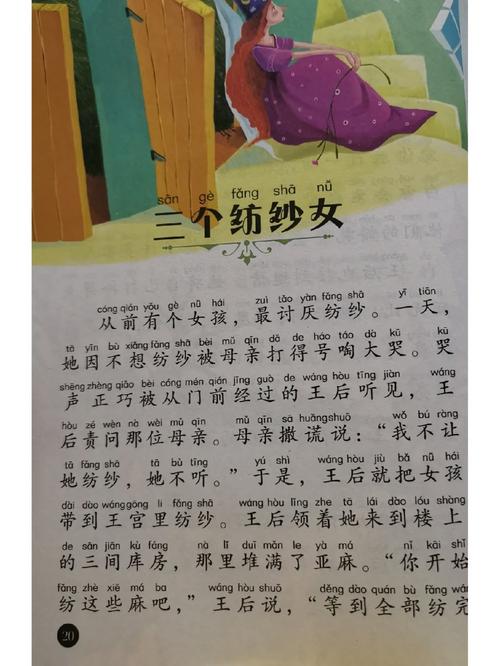 sān gè fǎng shā nǚ
三个纺纱女
cóng qián yǒu gè nǚ hái zuì tǎo yàn fǎng shā yī tiān
从前有个女孩，最讨厌纺纱。一天，
tā yīn bù xiǎng fǎng shā bèi mǔ qīn dǎ de háo táo dà kū kū
她因不想纺纱被母亲打得号啕大哭。哭
shēng zhèng qiǎo bèi cóng mén qián jīng guò de wáng hòu tīng jiàn wáng
声正巧被从门前经过的王后听见，王
hòu zé wèn nà wèi mǔ qīn mǔ qīn sā huǎng shuō wǒ bú ràng
后责问那位母亲。母亲撒谎说：“我不让
tā fǎng shā tā bù tīng yú shì wáng hòu jiù bǎ nǚ hái
她纺纱，她不听。”于是，王后就把女孩
dài dào wáng gōng li fǎng shā wáng hòu lǐng zhe tā lái dào lóu shàng
带到王宫里纺纱。王后领着她来到楼上
de sān jiān kù fáng nà lǐ duī mǎn le yà má nǐ kāi shǐ
的三间库房，那里堆满了亚麻。“你开始
fǎng zhè xiē má ba wáng hòu shuō děng dào quán bù fǎng wán
纺这些麻吧，”王后说，“等到全部纺完
20